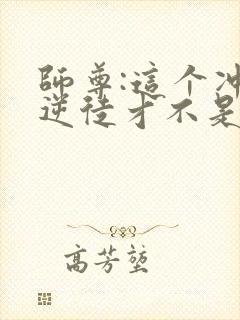 師尊:這个冲
逆徒才不是
高芳堃